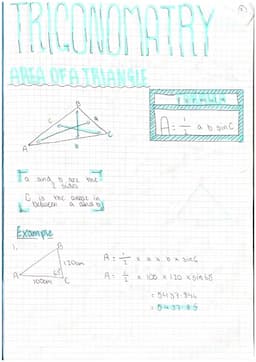 TRIGONOMATRY
AREA OF A TRIANGLE
Formula
A = 1/2 a b sin C
B
c
a
A
b
C
a and b are the
2 sides
C is the angle in
between a and b
Example
1.
B
120cm
A
65
C
100cm
A = 1/2 x a x b x sin C
A = 1/2 x 100 x 120 x sin 65
= 5437.846
= 5437.85